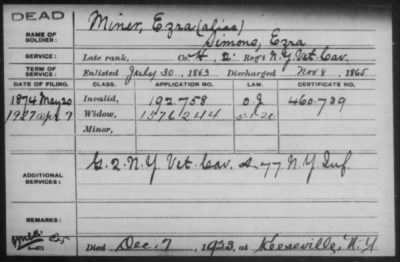 DEAD
NAME OF SOLDIER: Miner, Ezra (alias)
Simons, Ezra
SERVICE: Late rank, Co. A, 2 Reg't N.Y. Vet. Cav.
TERM OF SERVICE: Enlisted July 30, 1863 Discharged Nov 8, 1865
DATE OF FILING. CLASS. APPLICATION NO. LAW. CERTIFICATE NO.
1874 May 20 Invalid, 192.758 460.739
1927 Apr 7 Widow, 1576244 5-1-20
Minor,
ADDITIONAL SERVICES: G. 2. N.Y. Vet. Cav. A-77 N.Y. Inf.
REMARKS:
Died Dec. 7, 1923, at Keeseville, N.Y.